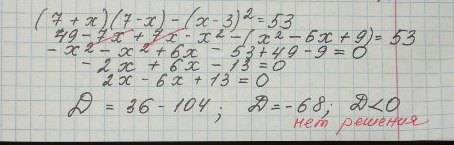 (7+x)(7-x)-(x-3)²=53
49-7x+7x-x²-(x²-6x+9)=53
-x²-x²+6x-53+49-9=0
-2x+6x-13=0
2x-6x+13=0
D=36-104; D=-68; D<0
нет решения